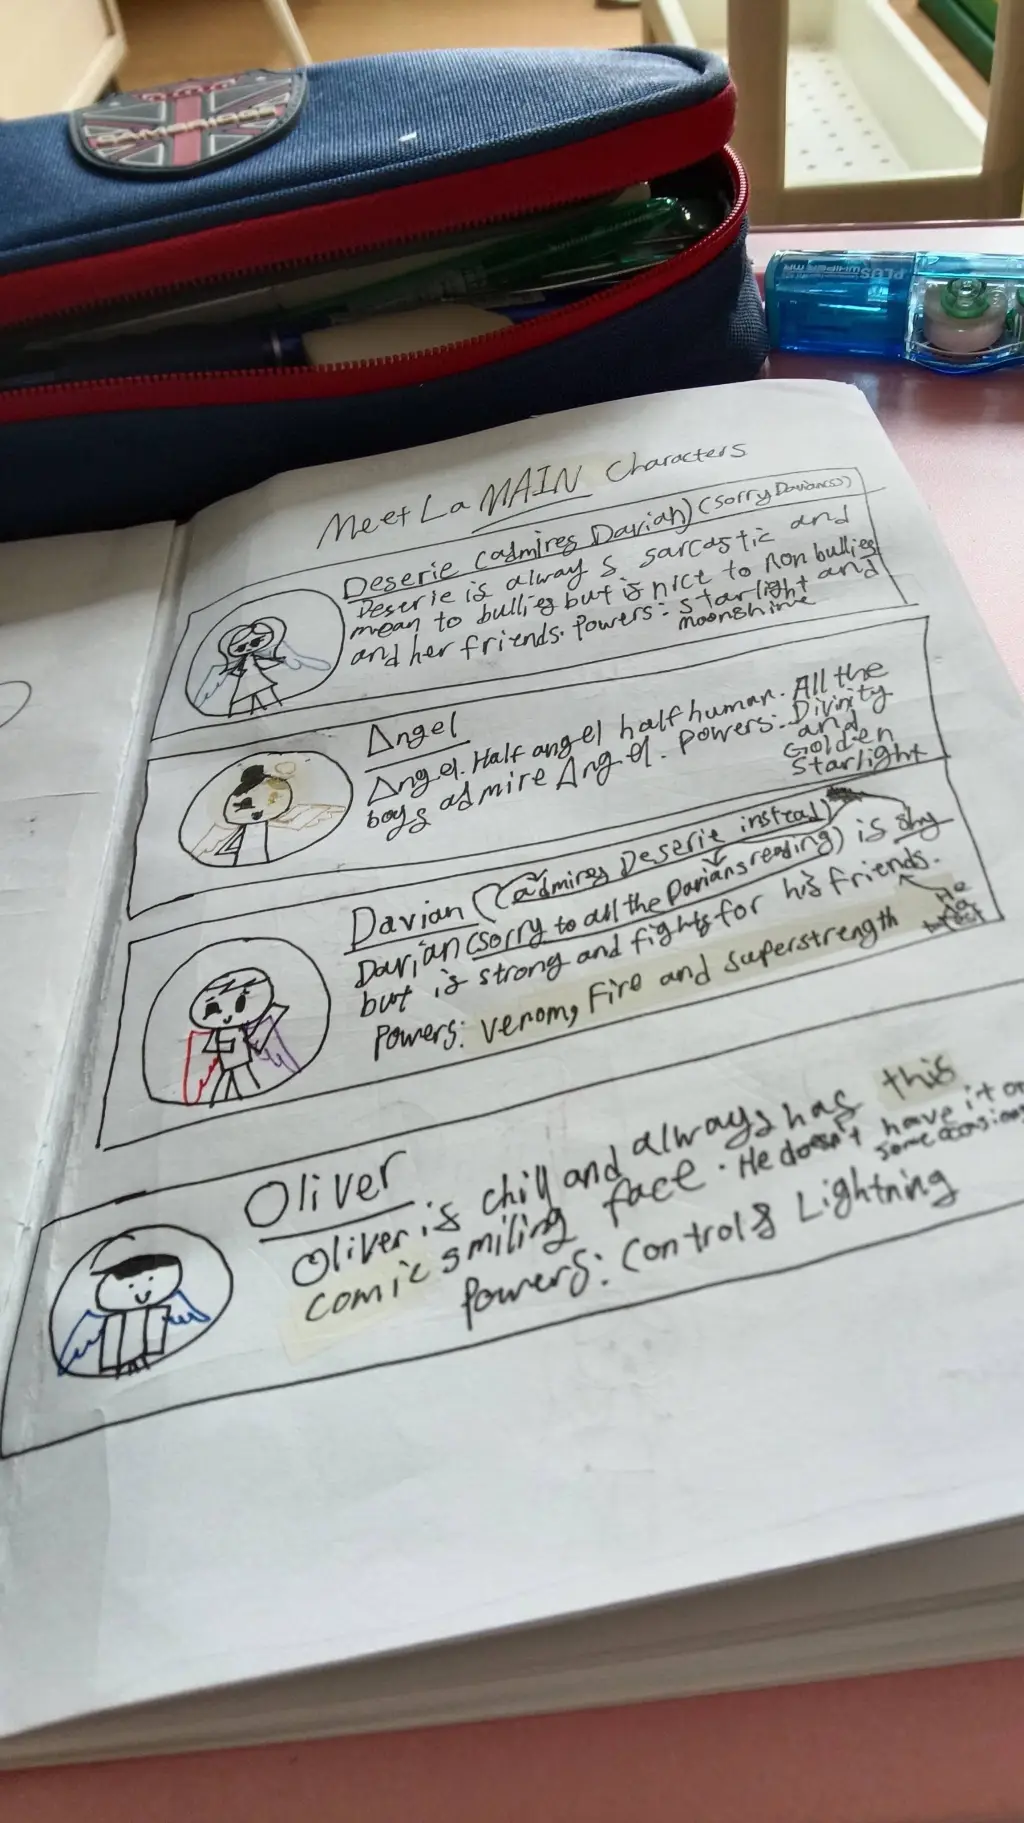 CAMBRIDGE
PLUS
WHIPER MR
Meet La MAIN Characters
Deserie (admires Darian) (Sorry Darian(s))
Deserie is always sarcastic and
mean to bullies but is nice to non bullies
and her friends. Powers: Starlight and
moonshine
Angel
Angel. Half angel half human. All the
boys admire Angel. Powers: Divinity
and
Golden
Starlight
Darian (admires Deserie instead)
Darian (sorry to all the Darians reading) is shy
but is strong and fights for his friends.
Powers: Venom, Fire and superstrength
Oliver
Oliver is chill and always has this
comic smiling face. He doesn't have it on
some occasions
Powers: Controls Lightning